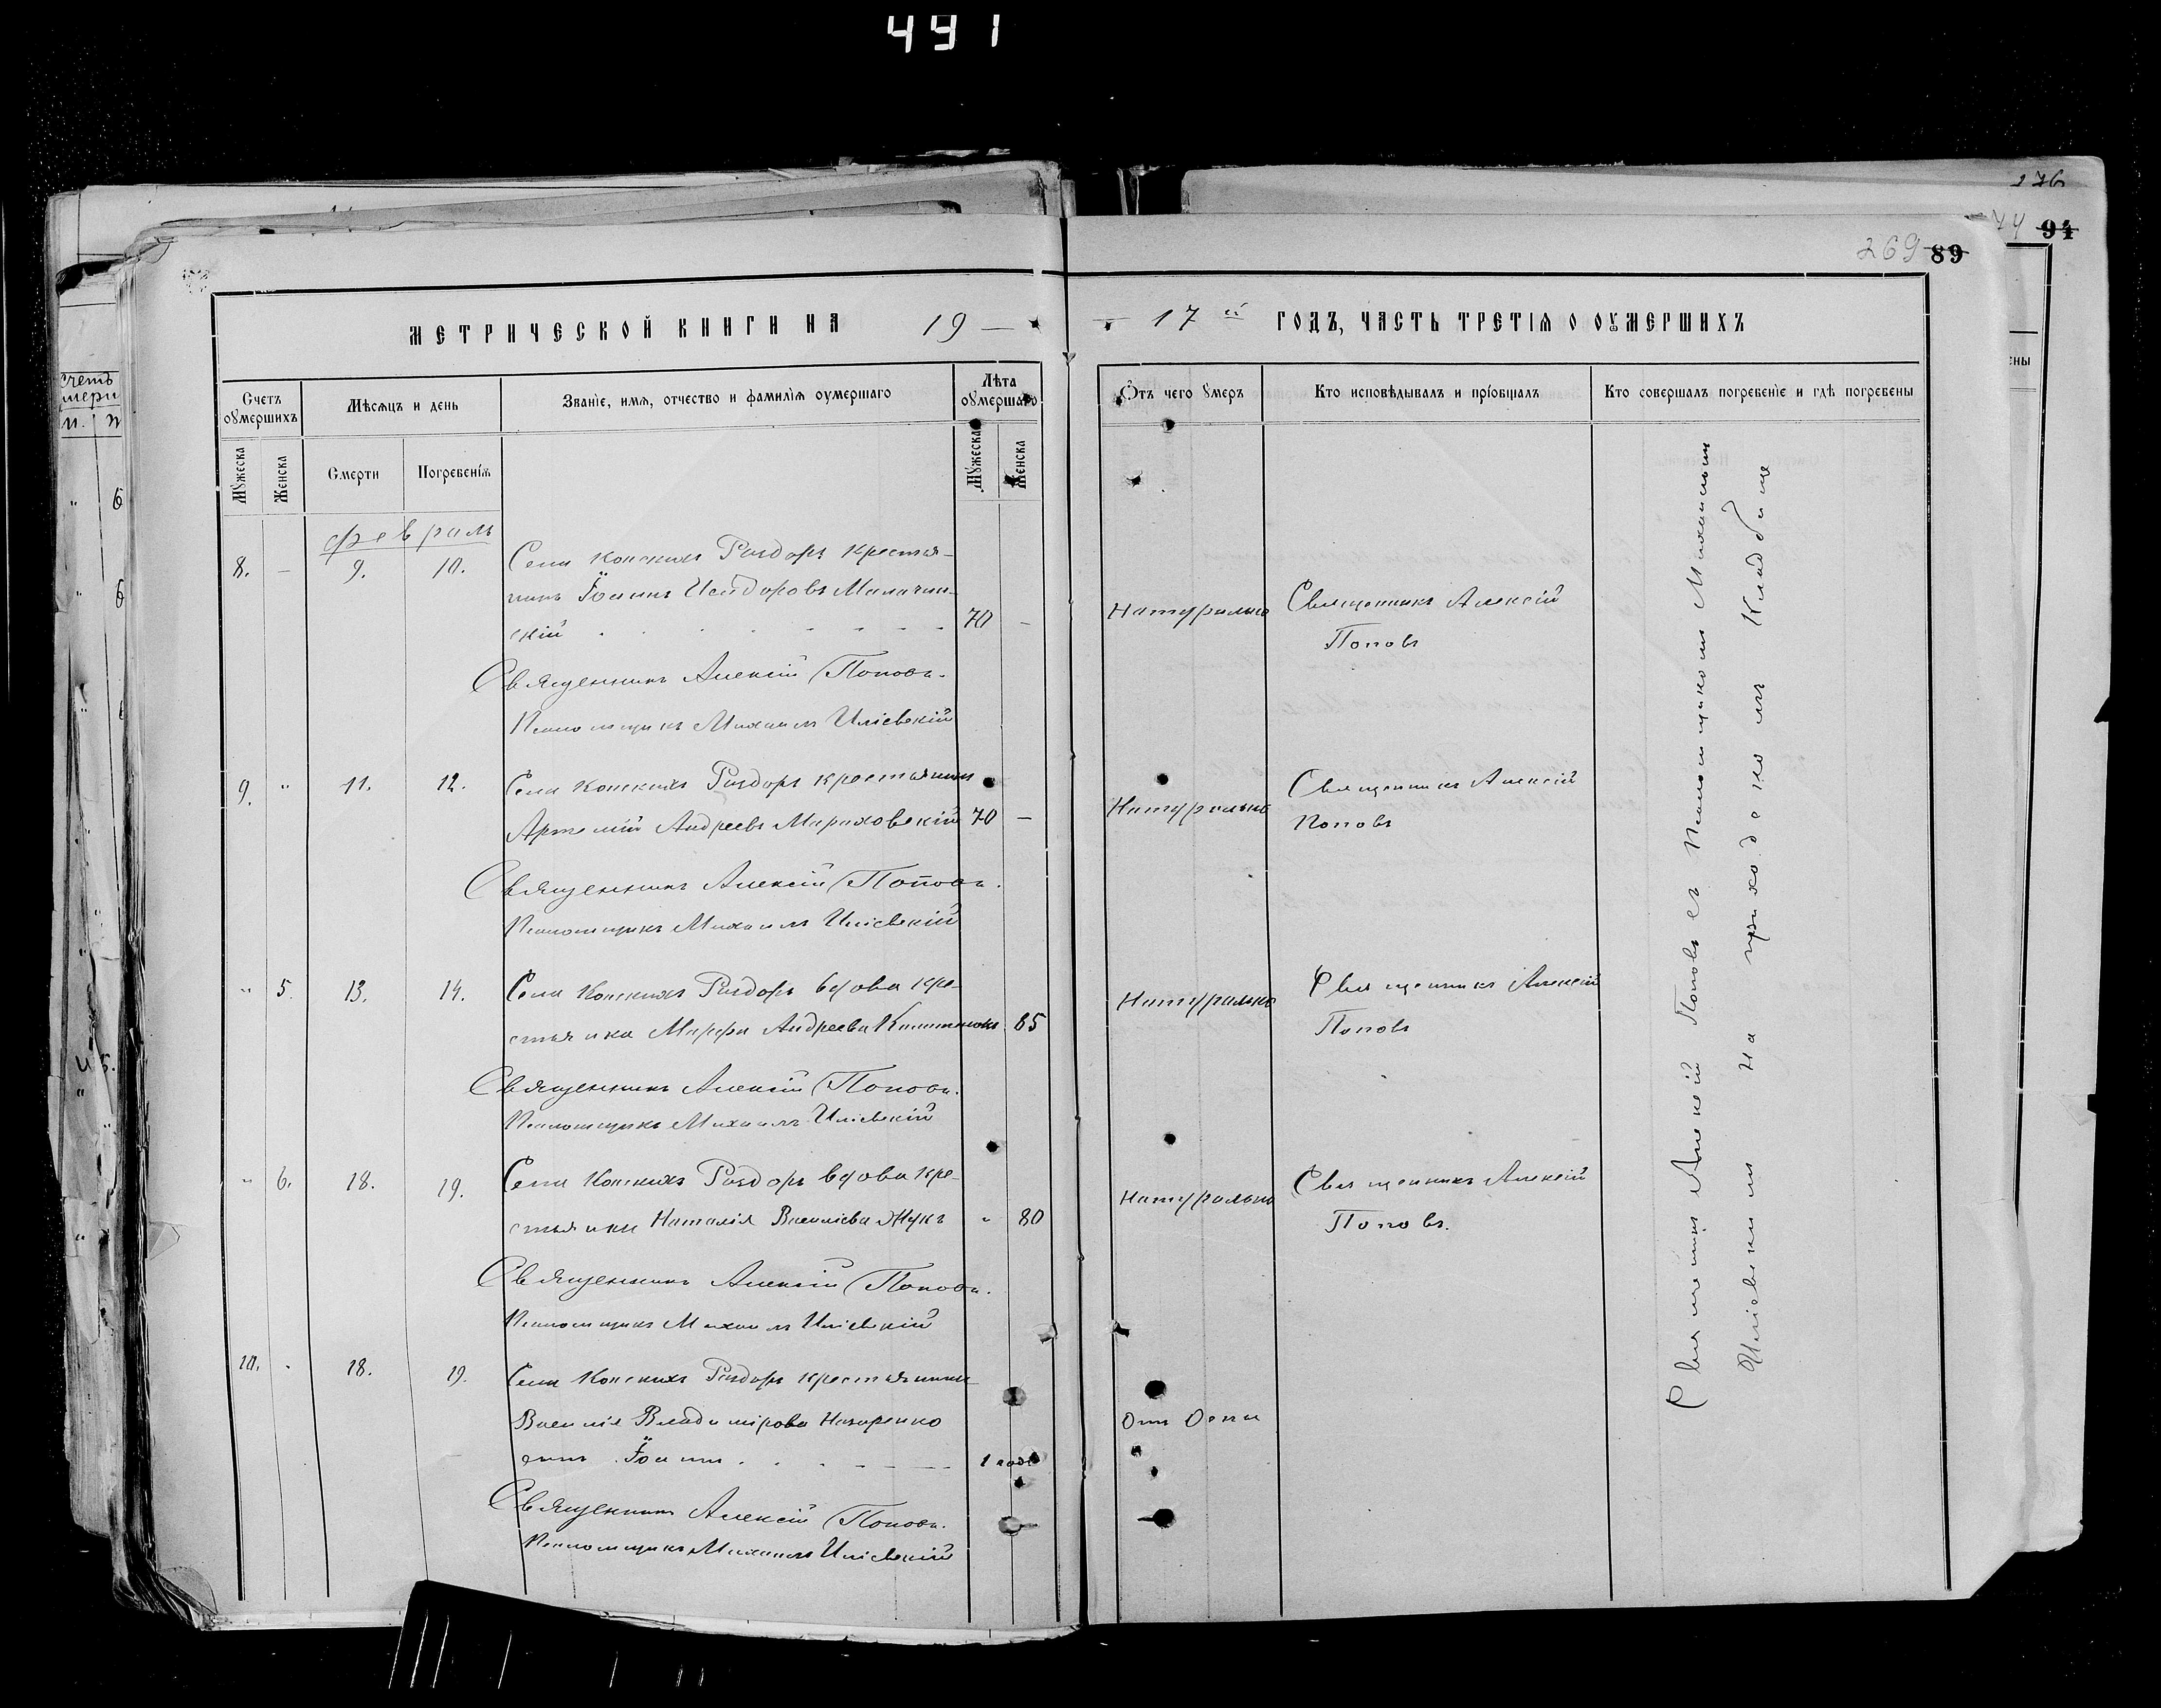 491
276
74 94
269 89
МЕТРИЧЕСКОЙ КНИГИ НА 19 — — 17 й ГОДЪ, ЧАСТЬ ТРЕТІѦ О ОУМЕРШИХЪ
Счетъ оумершихъ
Мѣсяцъ и день
Званіе, имя, отчество и фамиліѧ оумершаго
Лѣта оумершаго
Ѿтъ чего умеръ
Кто исповѣдывалъ и пріобщалъ
Кто совершалъ погребеніе и гдѣ погребены
Мужеска
Женска
Смерти
Погребеніѧ
Мужеска
Женска
февраль
8. — 9. 10. Села Конскихъ Раздоръ крестья-
нинъ Іоаннъ Исидоровъ
скій 70 — Натурально Священникъ Алексій
Поповъ
Священникъ Алексій Поповъ.
Псаломщикъ Михаилъ Иліевскій
9. " 11. 12. Села Конскихъ Раздоръ крестьянинъ
Артемій Андреевъ Мараховскій 70 — Натурально Священникъ Алексій
Поповъ
Священникъ Алексій Поповъ.
Псаломщикъ Михаилъ Иліевскій
" 5. 13. 14. Села Конскихъ Раздоръ вдова кре-
стьянка Марфа Андреева 85 Натурально Священникъ Алексій
Поповъ
Священникъ Алексій Поповъ.
Псаломщикъ Михаилъ Иліевскій
" 6. 18. 19. Села Конскихъ Раздоръ вдова кре-
стьянка Наталія Василіева Жукъ " 80 Натурально Священникъ Алексій
Поповъ.
Священникъ Алексій Поповъ.
Псаломщикъ Михаилъ Иліевскій
10. . 18. 19. Села Конскихъ Раздоръ крестьянина
Василія Владимірова Назаренко
сынъ Іоаннъ 1 годъ Отъ Оспы
Священникъ Алексій Поповъ.
Псаломщикъ Михаилъ Иліевскій
Священникъ Алексій Поповъ съ Псаломщикомъ Михаиломъ
Иліевскимъ На приходскомъ Кладбище